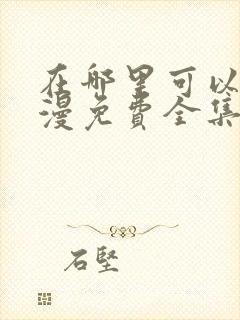 在哪里可以
漫免费全集
石坚